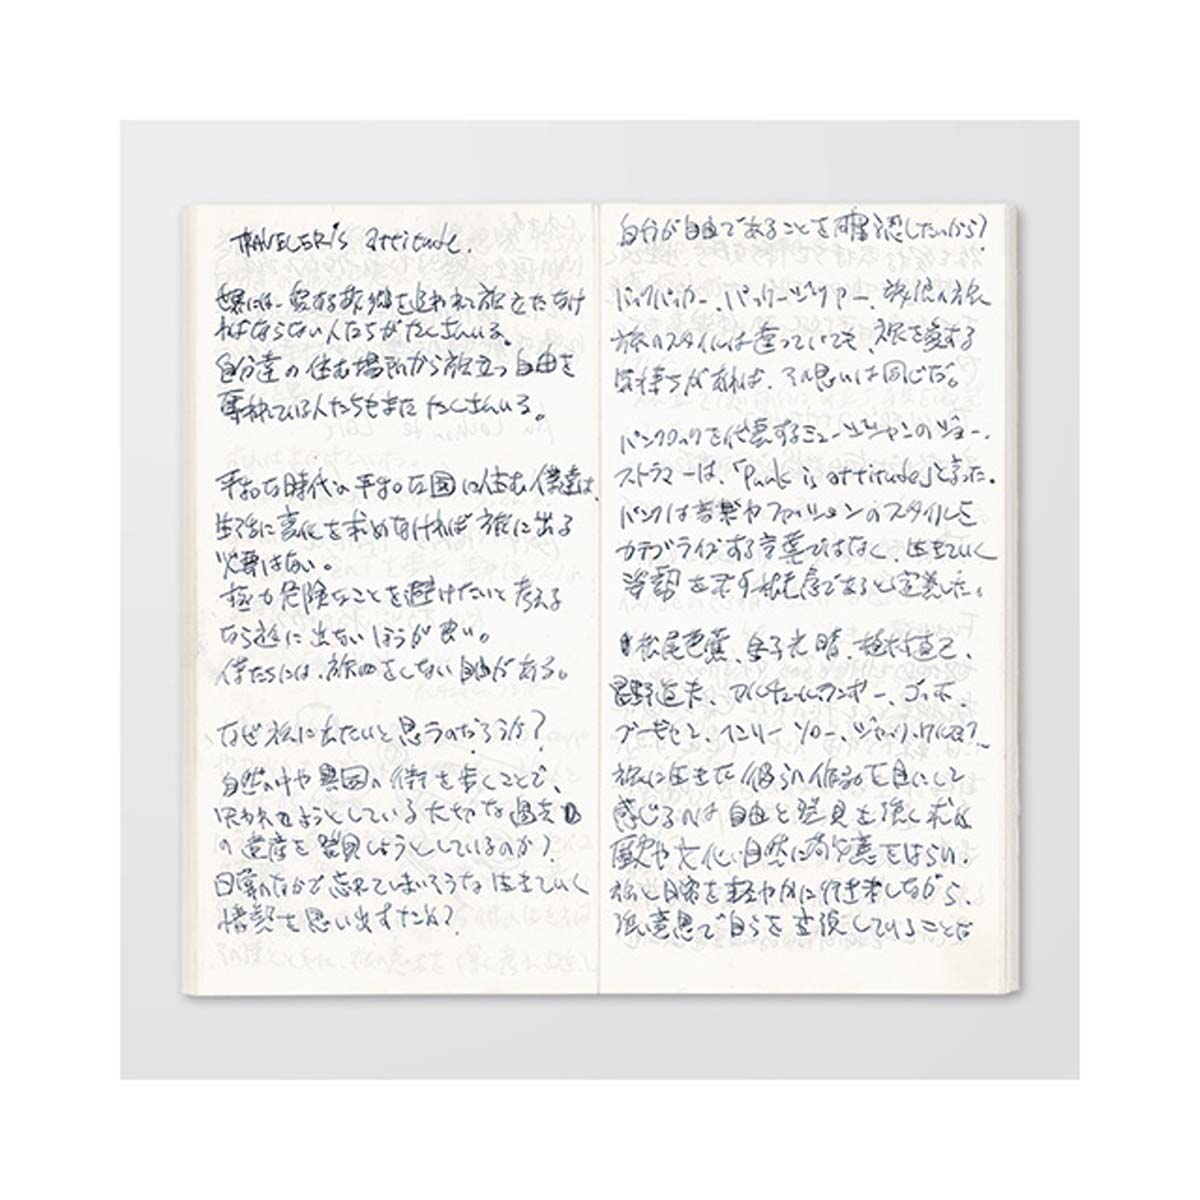 TRAVELER's attitude.
世界には、愛する故郷を追われて旅立たなけ
ればならない人たちがたくさんいる。
自分達の住む場所から旅立つ自由を
奪われている人たちもまたたくさんいる。
平和な時代の平和な国に住む僕達は、
生活に変化を求めなければ旅に出る
必要はない。
極力危険なことを避けたいと考える
なら旅に出ないほうが良い。
僕たちには、旅をしない自由がある。
なぜ旅に出たいと思うのだろうか?
自然の中や異国の街を歩くことで、
失われようとしている大切な過去
の遺産を発見しようとしているのか?
日常のなかで忘れてしまいそうな生きていく
情熱を思い出すため?
自分が自由であることを確認したいから?
バックパッカー、パッケージツアー、放浪の旅
旅のスタイルは違っていても、旅を愛する
気持ちがあれば、その思いは同じだ。
パンクロックを代表するミュージシャンのジョー・
ストラマーは、「Punk is attitude」と言った。
パンクは音楽やファッションのスタイルを
カテゴライズする言葉ではなく、生きていく
姿勢を示す概念であると定義した。
松尾芭蕉、金子光晴、植村直己、
星野道夫、アルチュールランボー、ゴッホ、
ブーゼセン、ヘンリー ソロー、ジャック・ケルアック
旅に生きた彼らの作品を目にして
感じるのは自由と発見を強く求め
歴史や文化、自然に敬意をはらい、
旅と日常を軽やかに行き来しながら、
強い意思で自らを表現していることだ